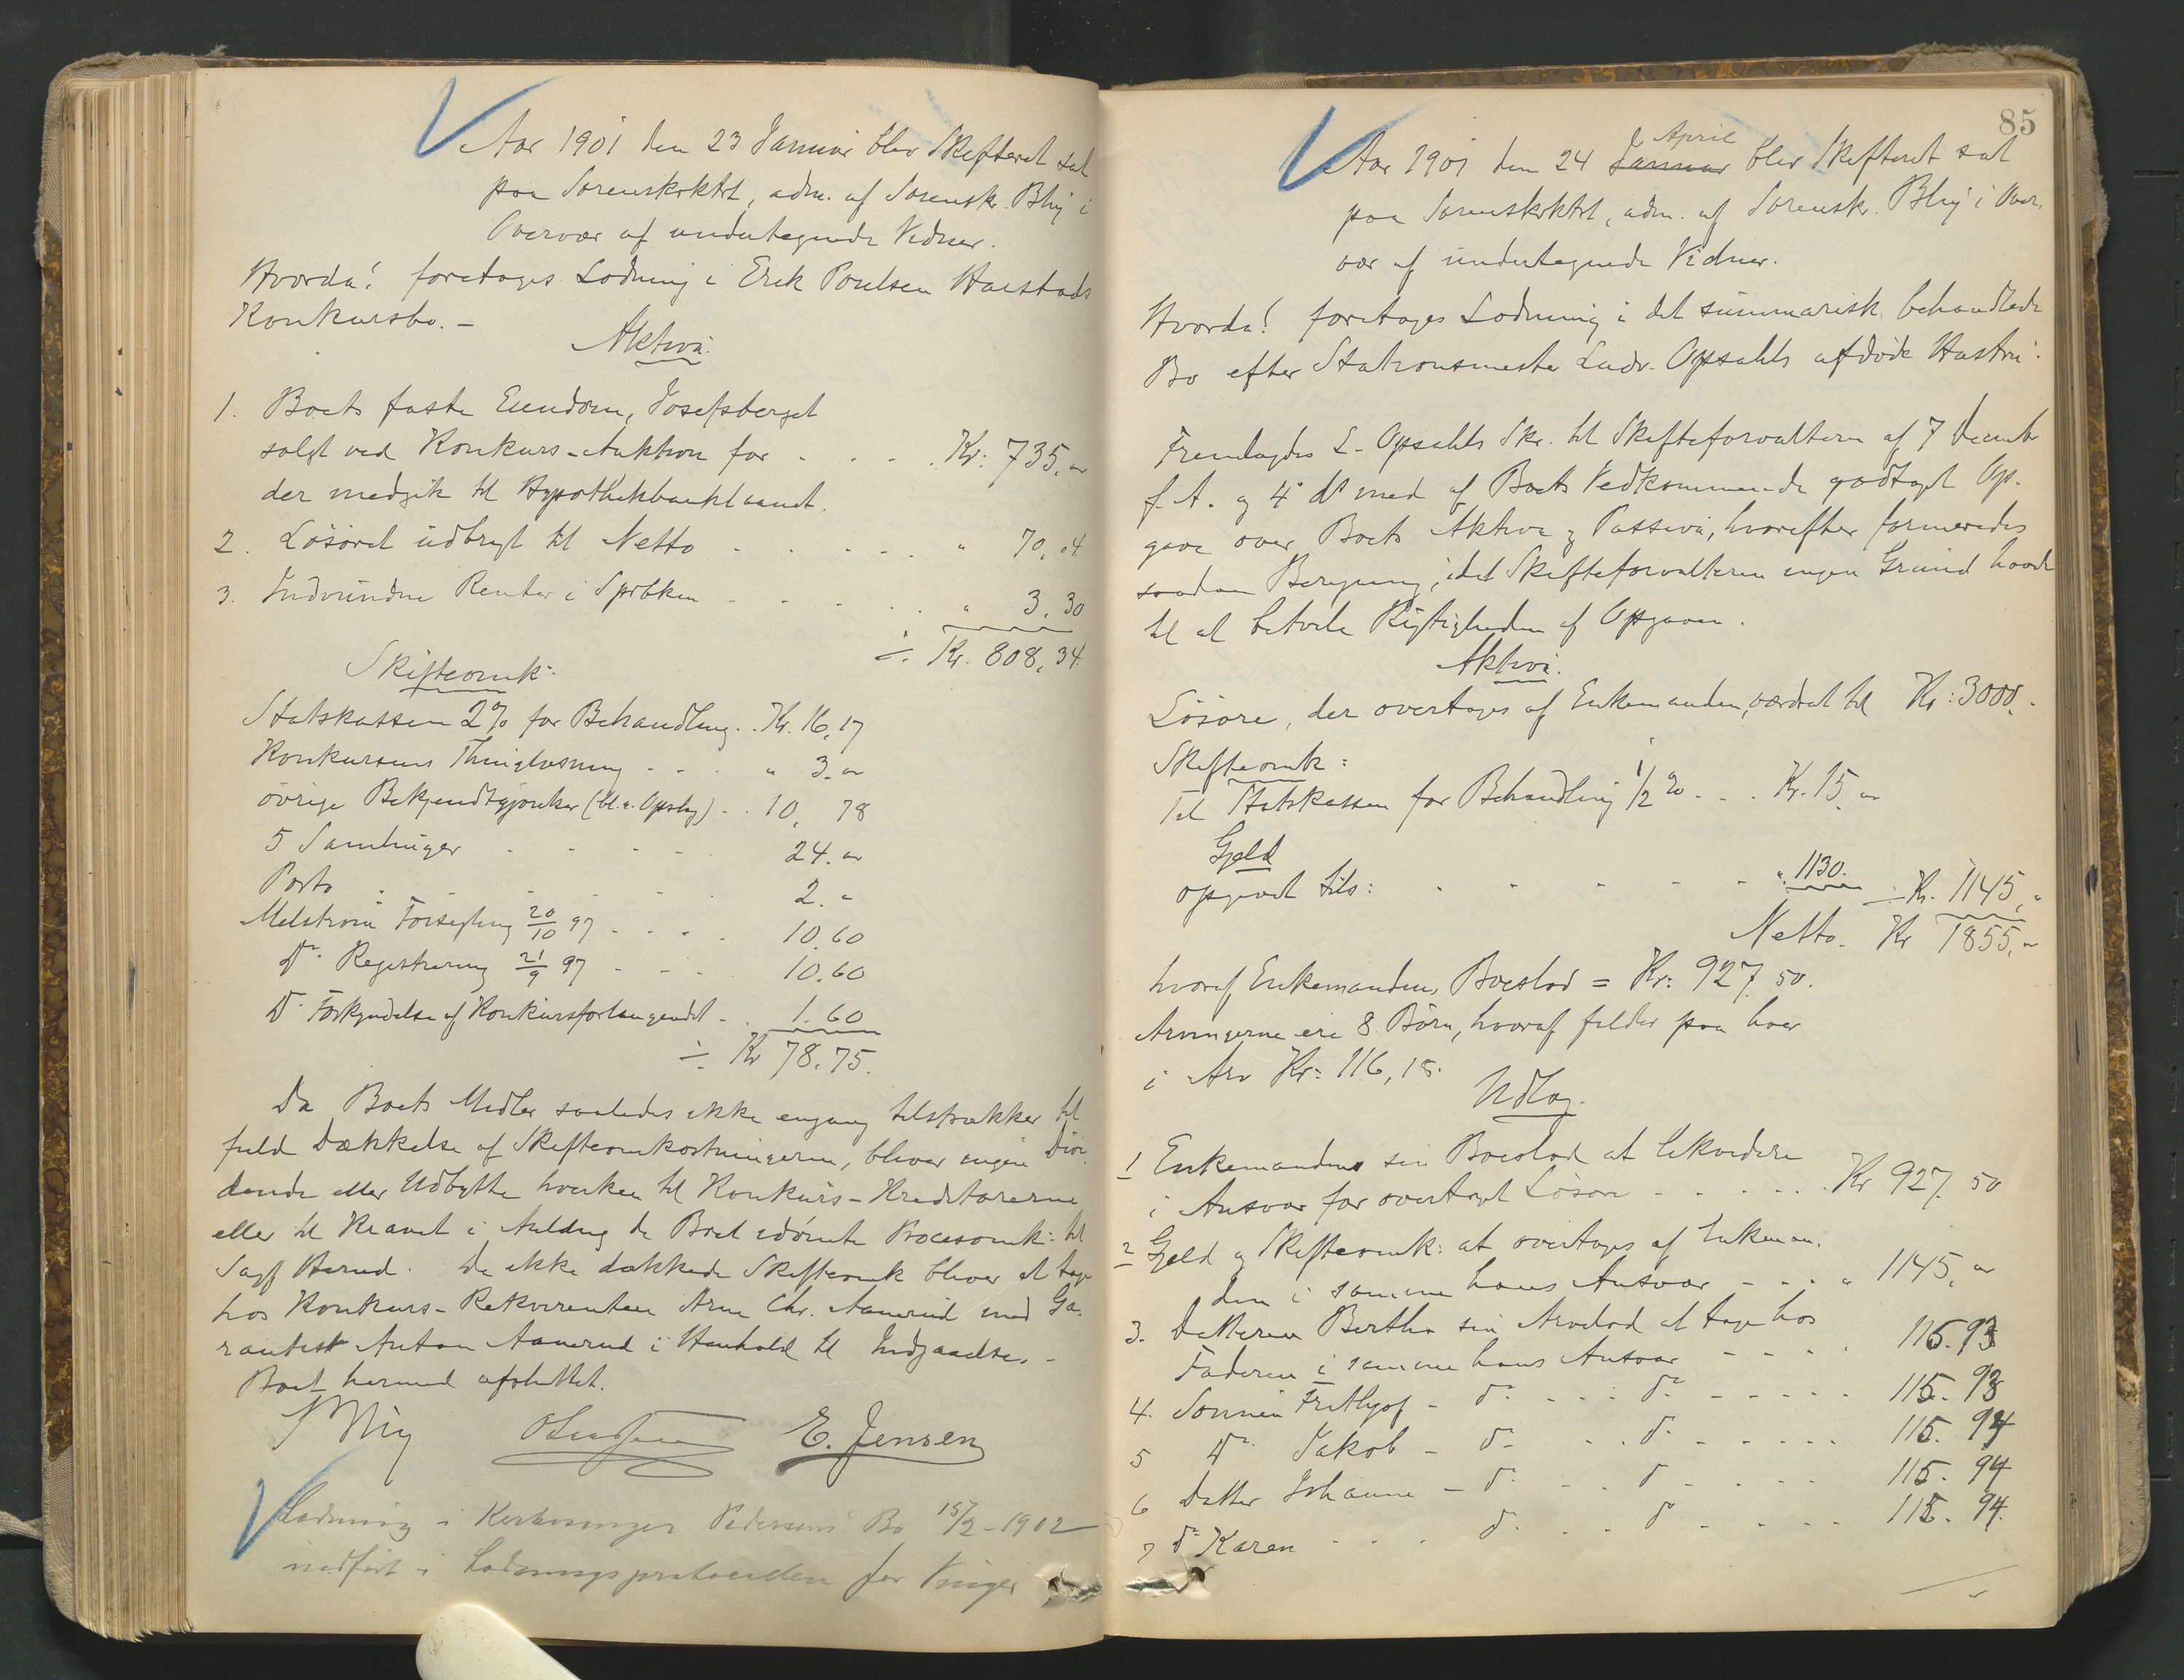 Aar 1901 den 23 Januar blev Skifteret sat
paa Sorenskrktrt, adm. af Sorenskr. Bly i
Overvær af undertegnede Vidner.
Hvorda! foretoges Lodning i Erik Poulsen Harstads
Konkursbo. –
Aktiva:
1. Boets faste Eiendom, Josefsberget
solgt ved Konkurs-Auktion for . . . . Kr: 735,"
der medgik til Hypothekbanklaanet.
2. Løsøret udbragt til Netto . . . . . " 70,04
3. Indvundne Renter i Sprbken . . . . . " 3,30
÷ Kr. 808,34
Skifteomk:
Statskassen 2% for Behandling . . Kr. 16,17
Konkursens Thinglæsning . . . " 3."
øvrige Bekjendtgjørelser (bl.a. Opslag) . . 10, 78
5 Samlinger . . . . . 24."
Porto . . . . . . 2."
Forsegling 20/10 97 . . . . 10.60
Do. Registrering 21/9 97 . . . 10.60
Do. Forkyndelse af Konkursforlangendet . . 1.60
÷ Kr 78.75.
Da Boets Midler saaledes ikke engang tilstrækker til
fuld Dækkelse af Skifteomkostningerne, bliver ingen Divi
dende eller Udbytte hverken til Konkurs-Kreditorerne
eller til Kravet i Anledng de Boet idømte Procesomk: til
Sagf Harud. De ikke dækkede Skifteomk bliver at tage
hos Konkurs-Rekvirenten Arne Chr. Aanerud med Ga-
rantist Anton Aanerud i Henhold til Indgaaelse. –
Boet hermed afsluttet.
Bly E. Jensen
Lodning i Pedersens Bo 15/2 - 1902
indført i Lodningsprotocollen for Vinger
85
Aar 1901 den 24 Januar April blev Skifteret sat
paa Sorenskrktrt, adm. af Sorenskr. Bly i Over,
vær af undertegnede Vidner.
Hvorda! foretoges Lodning i det summarisk behandlede
Bo efter Stationsmester Ludv. Opsahls afdøde Hustru.
Fremlagdes L. Opsahls Skr. til Skifteforvalteren af 7 Decembr
f. A. og 4 ds med af Boets Vedkommende godtaget Op-
gave over Boets Aktiva & Passiva, hvorefter formeredes
saadan Beregning, idet Skifteforvalteren ingen Grund havde
til at betvile Rigtigheden af Opgaven.
Aktiva.
Løsøre, der overtages af Enkemanden, værdsat til Kr: 3000,.
Skifteomk:
Til Statskassen for Behandling 1/2 % . . . Kr. 15."
Gjeld
opgivet tils: . . . . . " 1130. ÷ Kr. 1145,"
Netto. Kr 1855,"
hvoraf Enkemandens Boeslod = Kr: 927, 50.
Arvingerne ere 8 Børn, hvoraf falder paa hver
i Arv Kr: 116,18.
Udlæg.
1 Enkemanden sin Boeslod at likvidere
i Ansvar for overtaget Løsøre . . . . . Kr 927. 50
2 Gjeld og Skifteomk: at overtages af Enkeman-
den i samme hans Ansvar - - - " 1145,"
3. Datteren Bertha sin Arvelod at tage hos
Faderen i samme hans Ansvar - - - . 115.93
4. Sønnen Frithjof - do. - - - do. - - - - - 115. 93
5 Do. Jakob - do. - . . do. - - - - - 115. 94
6 Datter Johanne - do. - . . do. - - - - 115. 94
7 do Karen . . . do. . . . do. - - - - 115. 94.